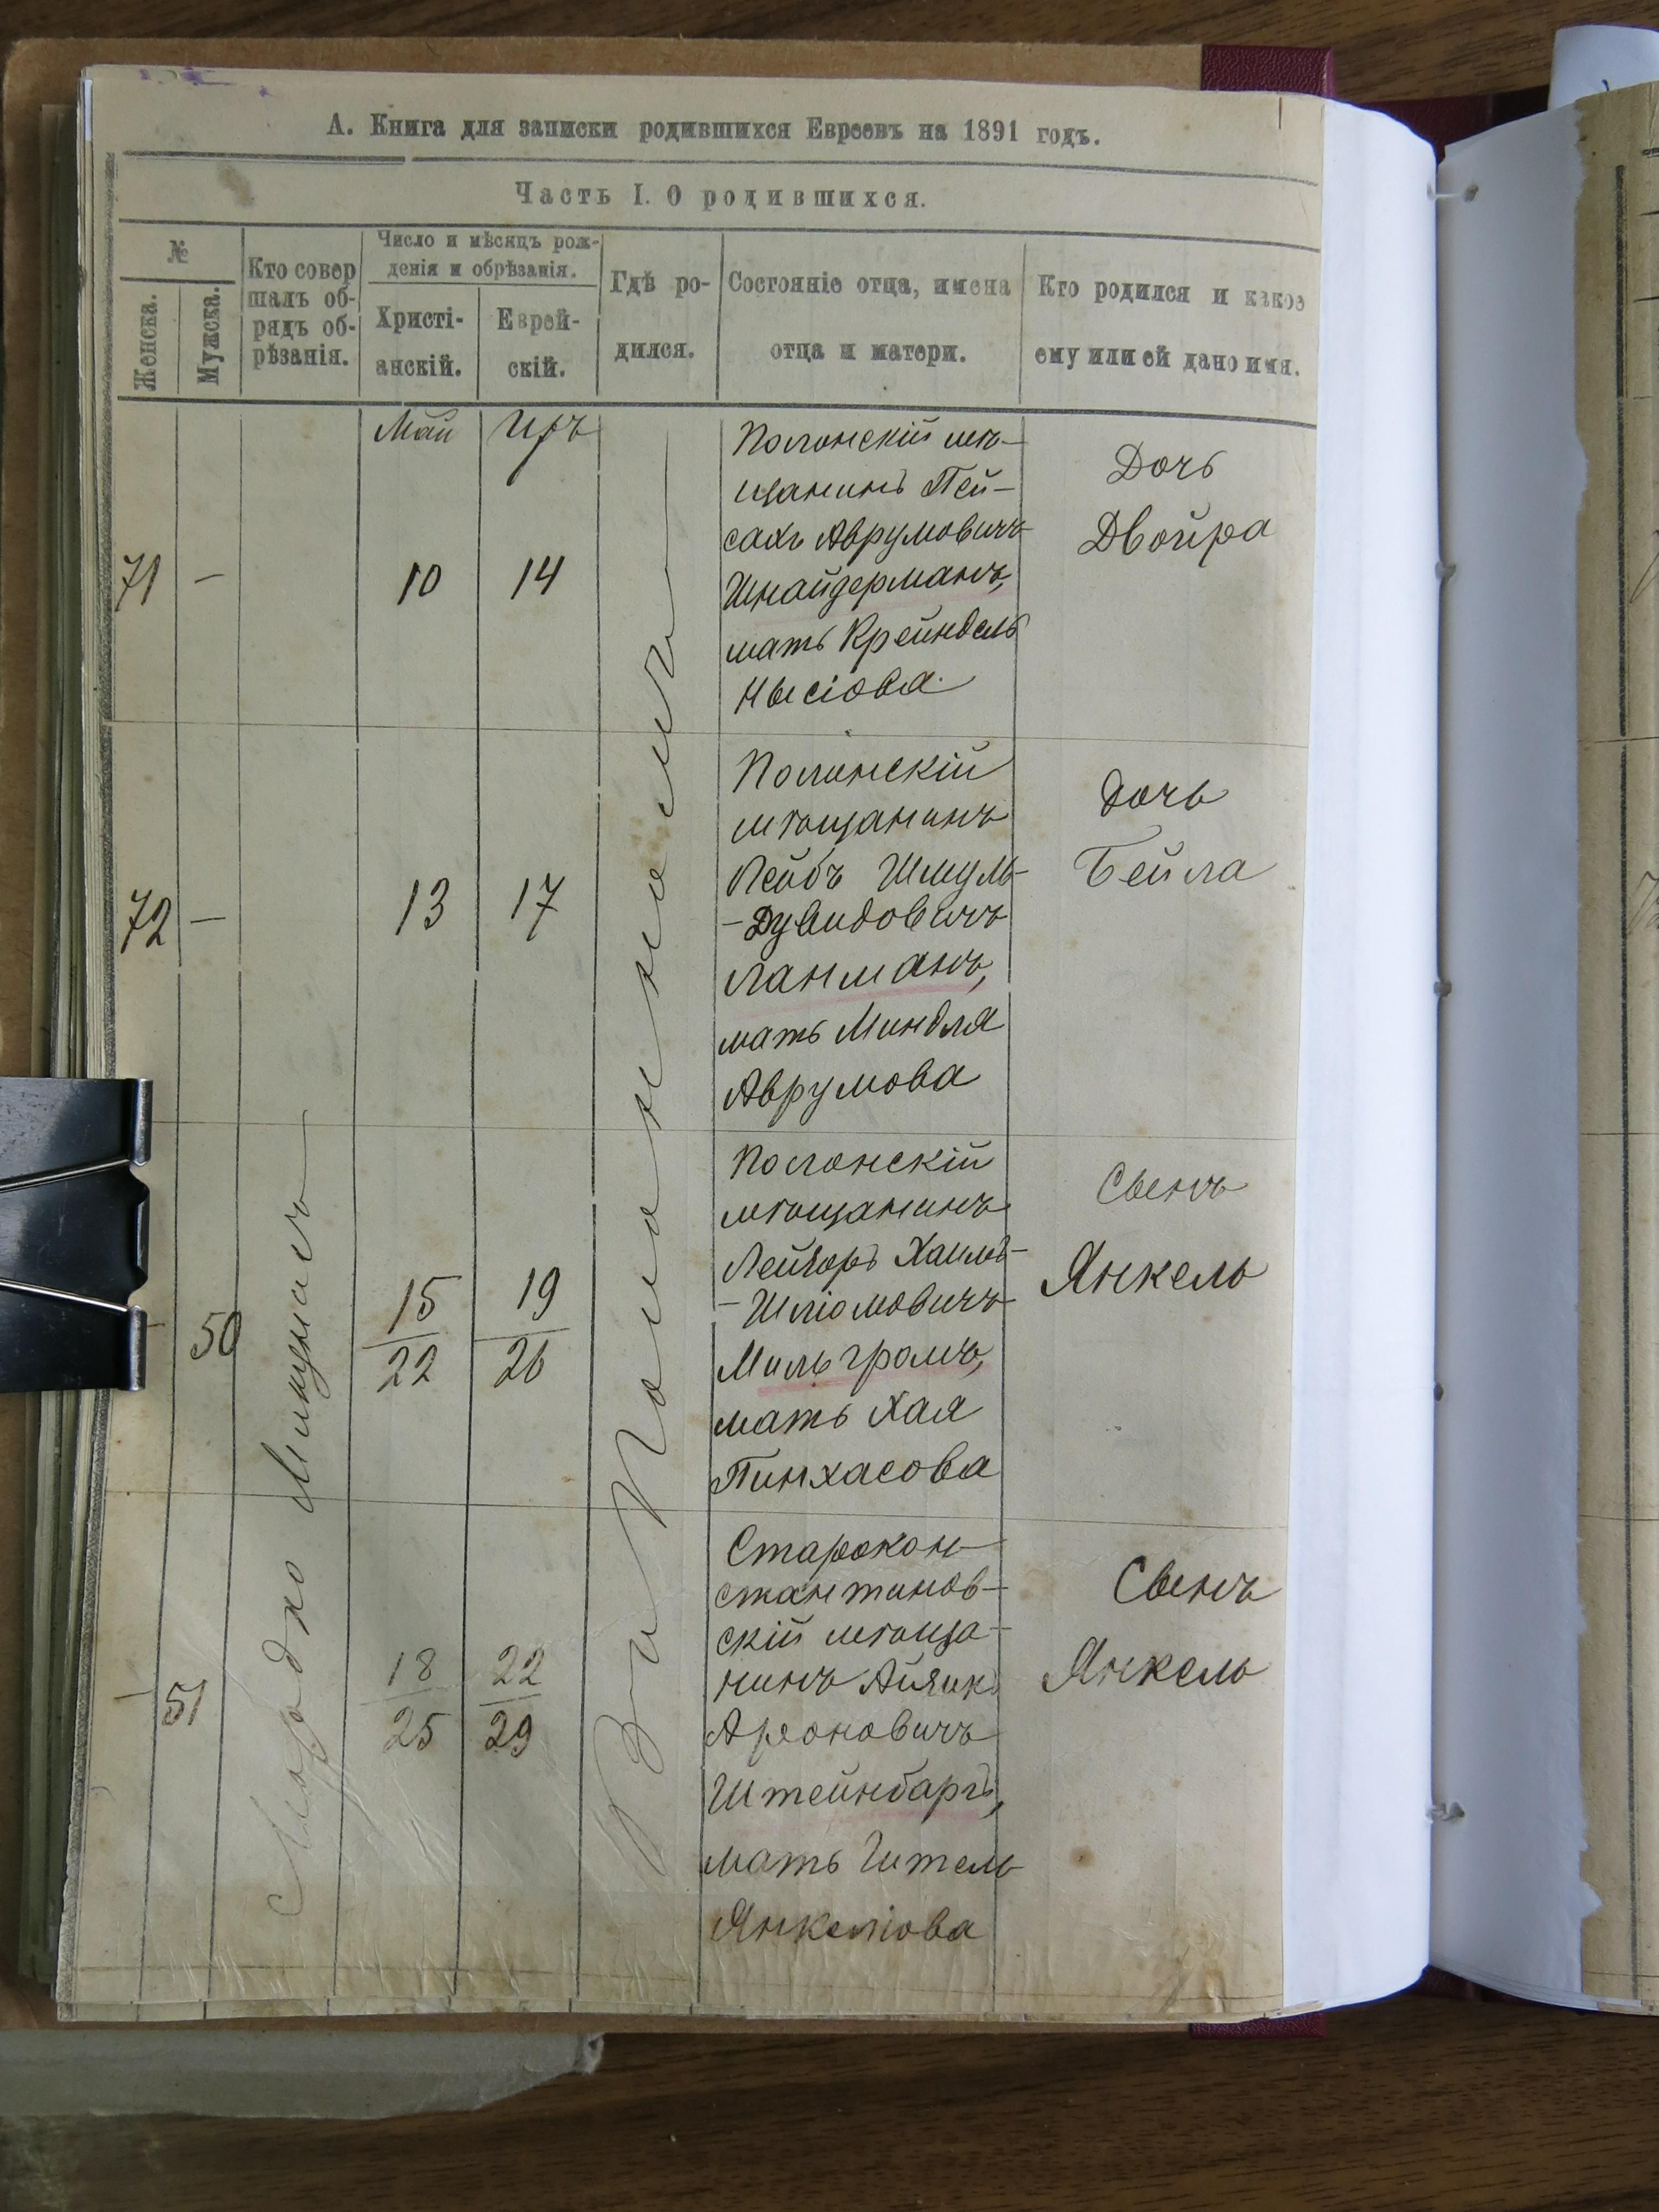 А. Книга для записки родившихся Евреевъ на 1891 годъ.
Часть I. О родившихся.
№
Женска.
Мужска.
Кто совер
шалъ об-
рядъ об-
рѣзанія.
Число и мѣсяцъ рож-
денія и обрѣзанія.
Христі-
анскій.
Еврей-
скій.
Гдѣ ро-
дился.
Состояніе отца, имена
отца и матери.
Кто родился и какое
ему или ей дано имя.
Май
Иръ
71
—
10
14
Полонскій мѣ-
щанинъ Пей-
сахъ Аврумовичъ
Шнайдерманъ,
мать Крейндель
Нысіова.
Дочь
Двойра
72
—
13
17
Полонскій
мѣщанинъ
Лейбъ Шмуль-
-Дувидовичъ
Ланманъ,
мать Миндля
Аврумова
Дочь
Бейла
—
50
15
22
19
26
Полонскій
мѣщанинъ
Лейзоръ Хаимъ-
-Шліомовичъ
Мильгромъ,
мать Хая
Пинхасова
Сынъ
Янкель
—
51
18
25
22
29
Старокон-
стантинов-
скій мѣща-
нинъ Айзикъ
Ароновичъ
Штейнбаргъ,
мать Гитель
Янкеліова
Сынъ
Янкель
Мікунисъ
Въ Полонномъ